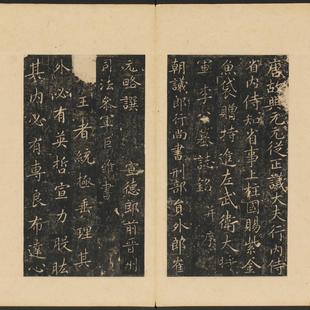 唐故興元元從正議大夫行內侍
省內侍知省事上柱國賜紫金
魚袋贈特進左武衛大將
軍李公墓誌銘并序
朝議郎行尚書刑部員外郎崔
元略撰 宣德郎前晉州
司法參軍巨雅書
王者統極垂理其
外必有英哲宣力股肱
其內必有專良布達心